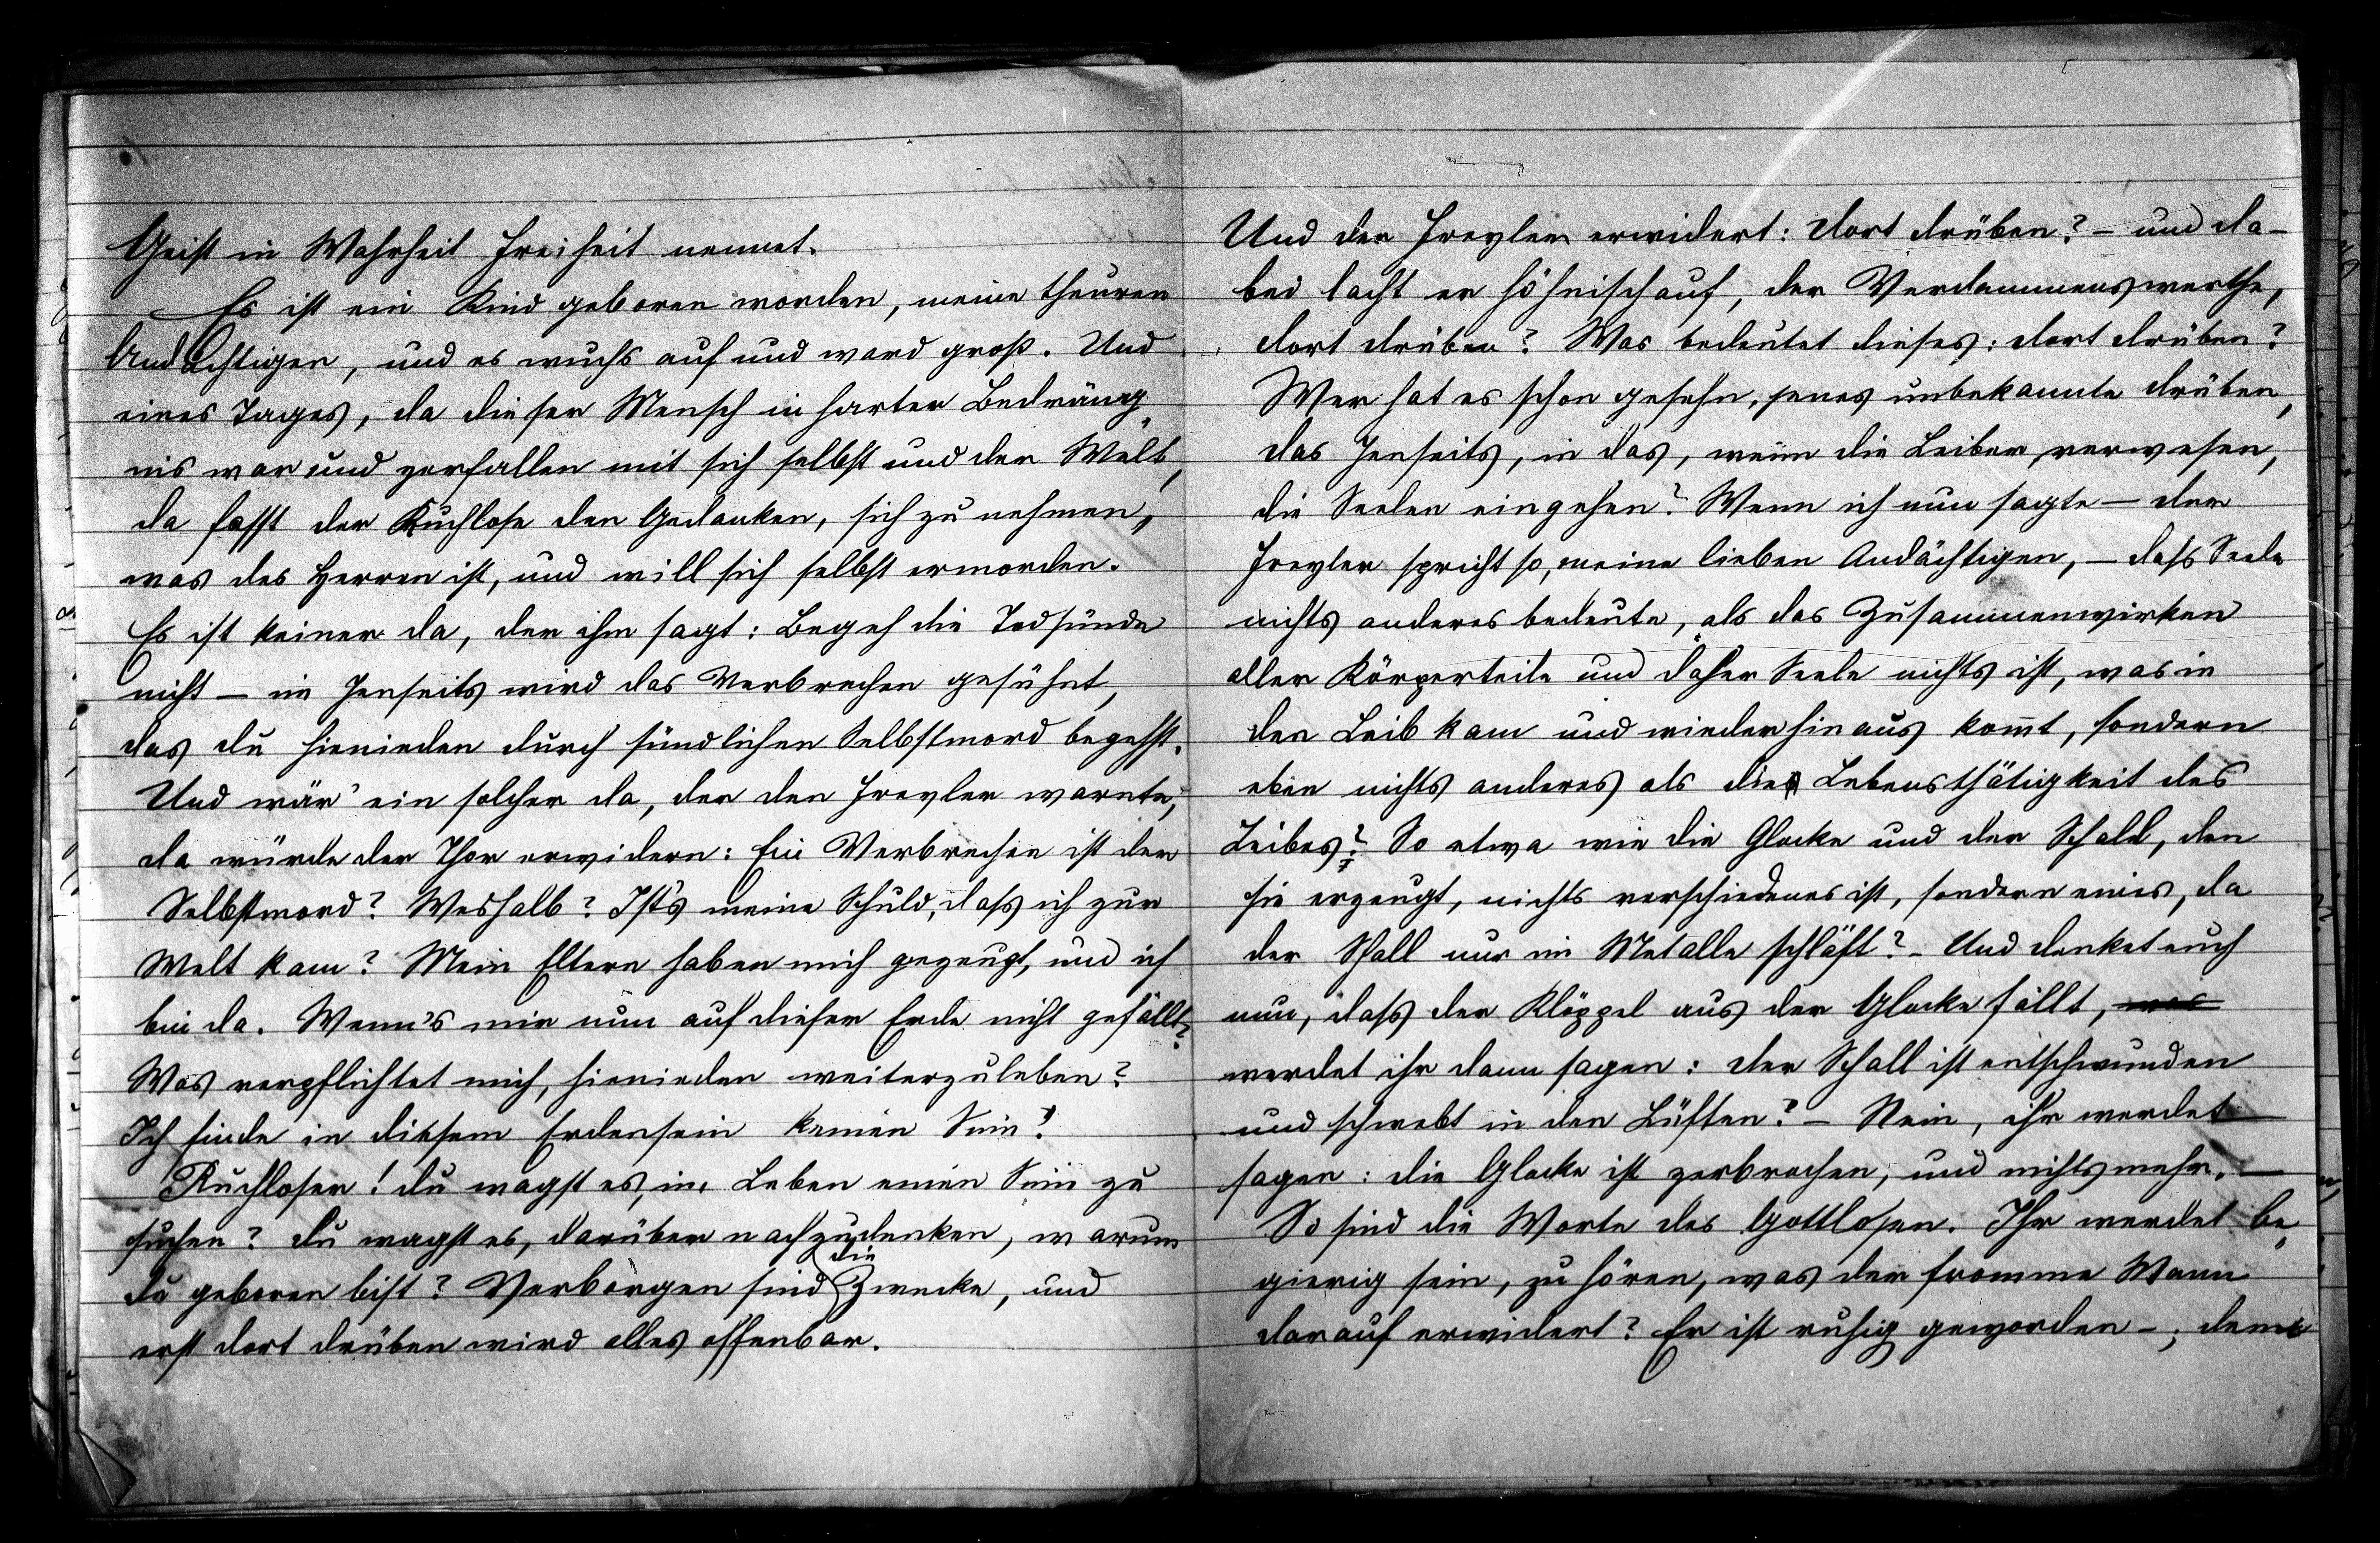 Geist in Wahrheit Freiheit nennet.
Es ist ein Kind geboren worden, meine theuren
Andächtigen, und es wuchs auf und ward groß. Und
eines Tages, da dieser Mensch in harter Bedräng„
nis war und zerfallen mit sich selbst und der Welt,
da fasst der Ruchlose den Gedanken, sich zu nehmen,
was des Herren ist, und will sich selbst ermorden.
Es ist keiner da, der ihm sagt: Begeh die Todsünde
nicht – im Jenseits wird das Verbrechen gesühnt,
das du hienieden durch sündlichen Selbstmord begehst.
Und wär' ein solcher da, der den Frevler warnte,
da würde der Thor erwidern: Ein Verbrechen ist der
Selbstmord? Weshalb? Ist's meine Schuld, dass ich zur
Welt kam? Mein Eltern haben mich gezeugt, und ich
bin da. Wenn's mir nun auf dieser Erde nicht gefällt?
Was verpflichtet mich, hienieden weiterzuleben?
Ich finde in diesem Erdensein keinen Sinn!
Ruchloser! du wagst es, im Leben einen Sinn zu
suchen? du wagst es, darüber nachzudenken, warum
du geboren bist? Verborgen sind die Zwecke, und
erst dort drüben wird alles offenbar.
Und der Frevler erwidert: dort drüben? – und da-
bei lacht er höhnisch auf, der Verdammenswerthe,
dort drüben? Was bedeutet dieses: dort drüben?
Wer hat es schon gesehn, jenes unbekannte drüben,
das Jenseits, in das, wenn die Leiber verwesen,
die Seelen eingehen? Wenn ich nun sagte – der
Frevler spricht so, meine lieben Andächtigen, – dass Seele
nichts anderes bedeute, als das Zusammenwirken
aller Körperteile und daher Seele nichts ist, was in
den Leib kam und wieder hinaus kom̅t, sondern
eben nichts anderes als die Lebensthätigkeit des
Leibes? So etwa wie die Glocke und der Schall, den
sie erzeugt, nichts verschiedenes ist, sondern eines, da
der Schall nur im Metalle schläft? – Und denket euch
nun, dass der Klöppel aus der Glocke fällt, was
werdet ihr dann sagen: der Schall ist entschwunden
und schwebt in den Lüften? – Nein, ihr werdet
sagen: die Glocke ist zerbrochen, und nichts mehr. –
So sind die Worte des Gottlosen. Ihr werdet be„
gierig sein, zu hören, was der fromme Mann
darauf erwidert? Er ist ruhig geworden –; denn